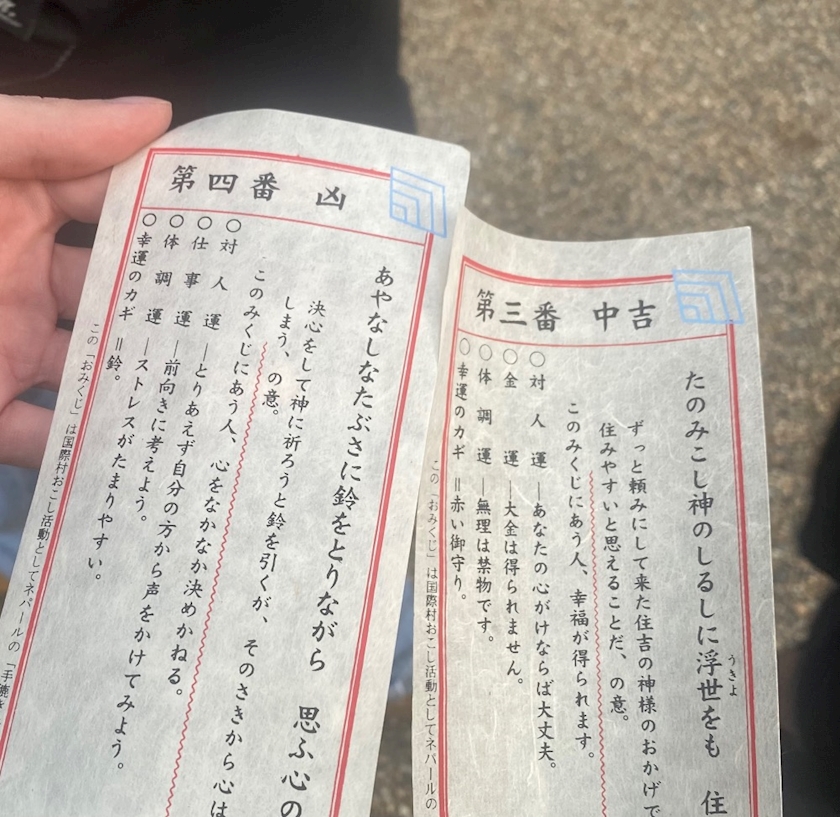 第四番 凶
あやなしなたぶさに鈴をとりながら 思ふ心の
決心をして神に祈ろうと鈴を引くが、そのさきから心は
しまう、の意。
このみくじにあう人、心をなかなか決めかねる。
○対人運―とりあえず自分の方から声をかけてみよう。
○仕事運―前向きに考えよう。
○体調運―ストレスがたまりやすい。
○幸運のカギ=鈴。
この「おみくじ」は国際村おこし活動としてネパールの「手漉き
第三番 中吉
たのみこし神のしるしに浮世をも 住
うきよ
ずっと頼みにして来た住吉の神様のおかげで
住みやすいと思えることだ、の意。
このみくじにあう人、幸福が得られます。
○対人運―あなたの心がけならば大丈夫。
○金運―大金は得られません。
○体調運―無理は禁物です。
○幸運のカギ=赤い御守り。
この「おみくじ」は国際村おこし活動としてネパールの